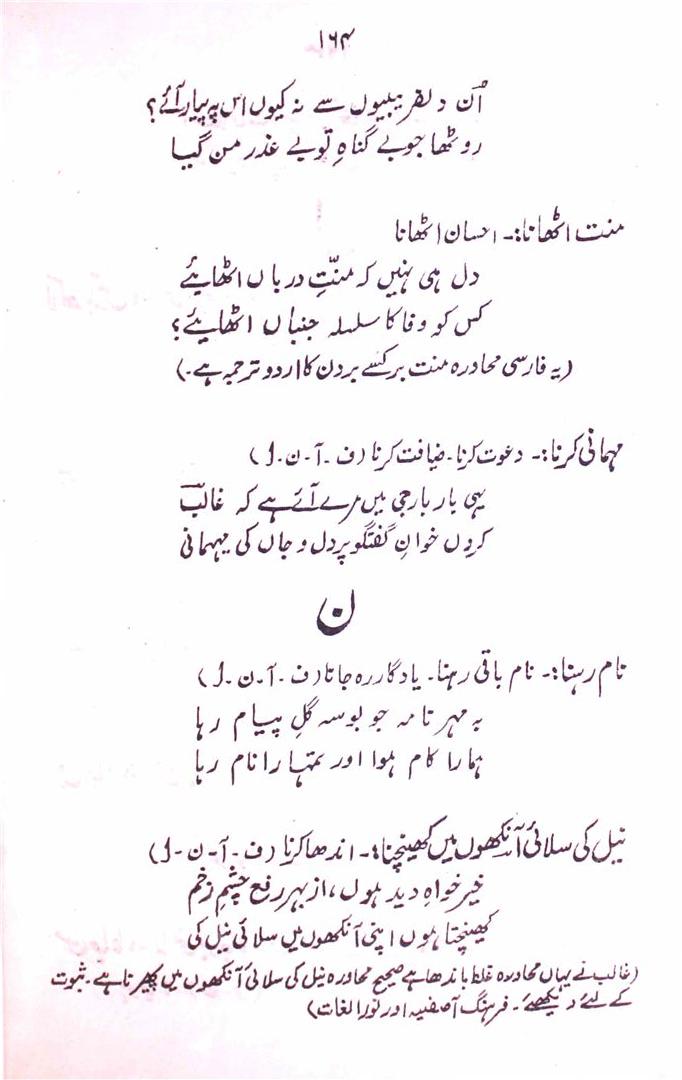 ۱۶۴
اُن دلفریبیوں سے نہ کیوں اس پہ پیار آئے؟
روٹھا جو بے گناہ تو بے عذر من گیا
منت اٹھانا:۔ احسان اٹھانا
دل ہی نہیں کہ منّتِ درباں اٹھایئے
کس کو وفا کا سلسلہ جنباں اٹھایئے؟
(یہ فارسی محاورہ منت بر کسے بردن کا اردو ترجمہ ہے۔)
مہمانی کرنا:۔ دعوت کرنا۔ ضیافت کرنا (ف۔آ۔ن۔ل)
یہی بار بار جی میں مرے آئے ہے کہ غالبؔ
کروں خوانِ گفتگو پر دل و جاں کی میہمانی
ن
نام رہنا:۔ نام باقی رہنا۔ یادگار رہ جانا (ف۔آ۔ن۔ل)
بہ مہر نامہ جو بوسہ گلِ پیام رہا
ہمارا کام ہوا اور تمہارا نام رہا
نیل کی سلائی آنکھوں میں کھینچنا:۔ اندھا کرنا (ف۔آ۔ن۔ل)
خیر خواہِ دید ہوں، از بہر رفع چشمِ زخم
کھینچتا ہوں اپنی آنکھوں میں سلائی نیل کی
(غالب نے یہاں محاورہ غلط باندھا ہے صحیح محاورہ نیل کی سلائی آنکھوں میں پھیرنا ہے۔ ثبوت
کے لئے دیکھئے۔ فرہنگ آصفیہ اور نور الغات)